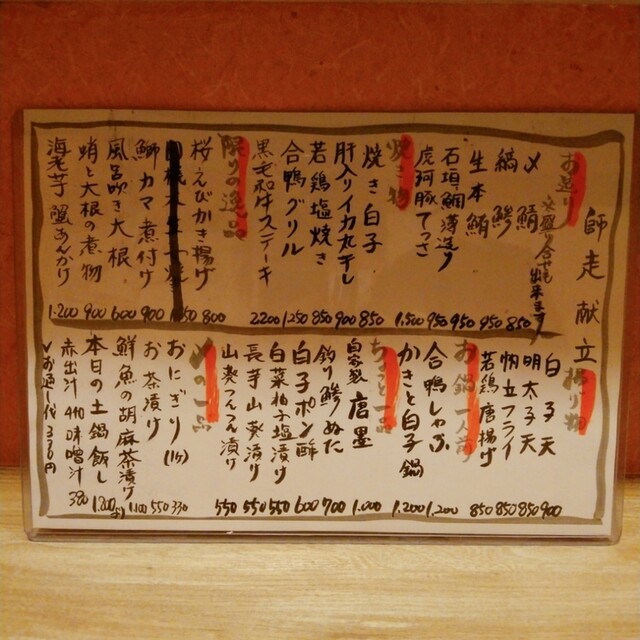 師走献立
お造り
※盛り合せも出来ます
〆鯖 850
縞鯵 950
生本鮪 950
石垣鯛薄造り 950
虎河豚てっさ 1,500
焼き物
焼き白子 850
肝入りイカ丸干し 900
若鶏塩焼き 850
合鴨グリル 1,250
黒毛和牛ステーキ 2200
限りの逸品
桜えびかき揚げ 800
鰤カマ煮付け 900
風呂吹き大根 600
蛸と大根の煮物 900
海老芋蟹あんかけ 1,200
揚げ物
白子天 900
明太子天 850
帆立フライ 850
若鶏唐揚げ 850
お鍋一人前
合鴨しゃぶ 1,200
かきと白子鍋 1,200
ちょっと一品
自家製唐墨 1,000
釣り鯵ぬた 700
白子ポン酢 600
白菜柚子塩漬け 550
長芋山葵漬け 550
山葵つんつん漬け 550
〆の一品
おにぎり(1ケ) 330
お茶漬け 550
鮮魚の胡麻茶漬け 1,100
本日の土鍋飯し 1,200より
赤出汁 440 味噌汁 380
✓お通し代330円